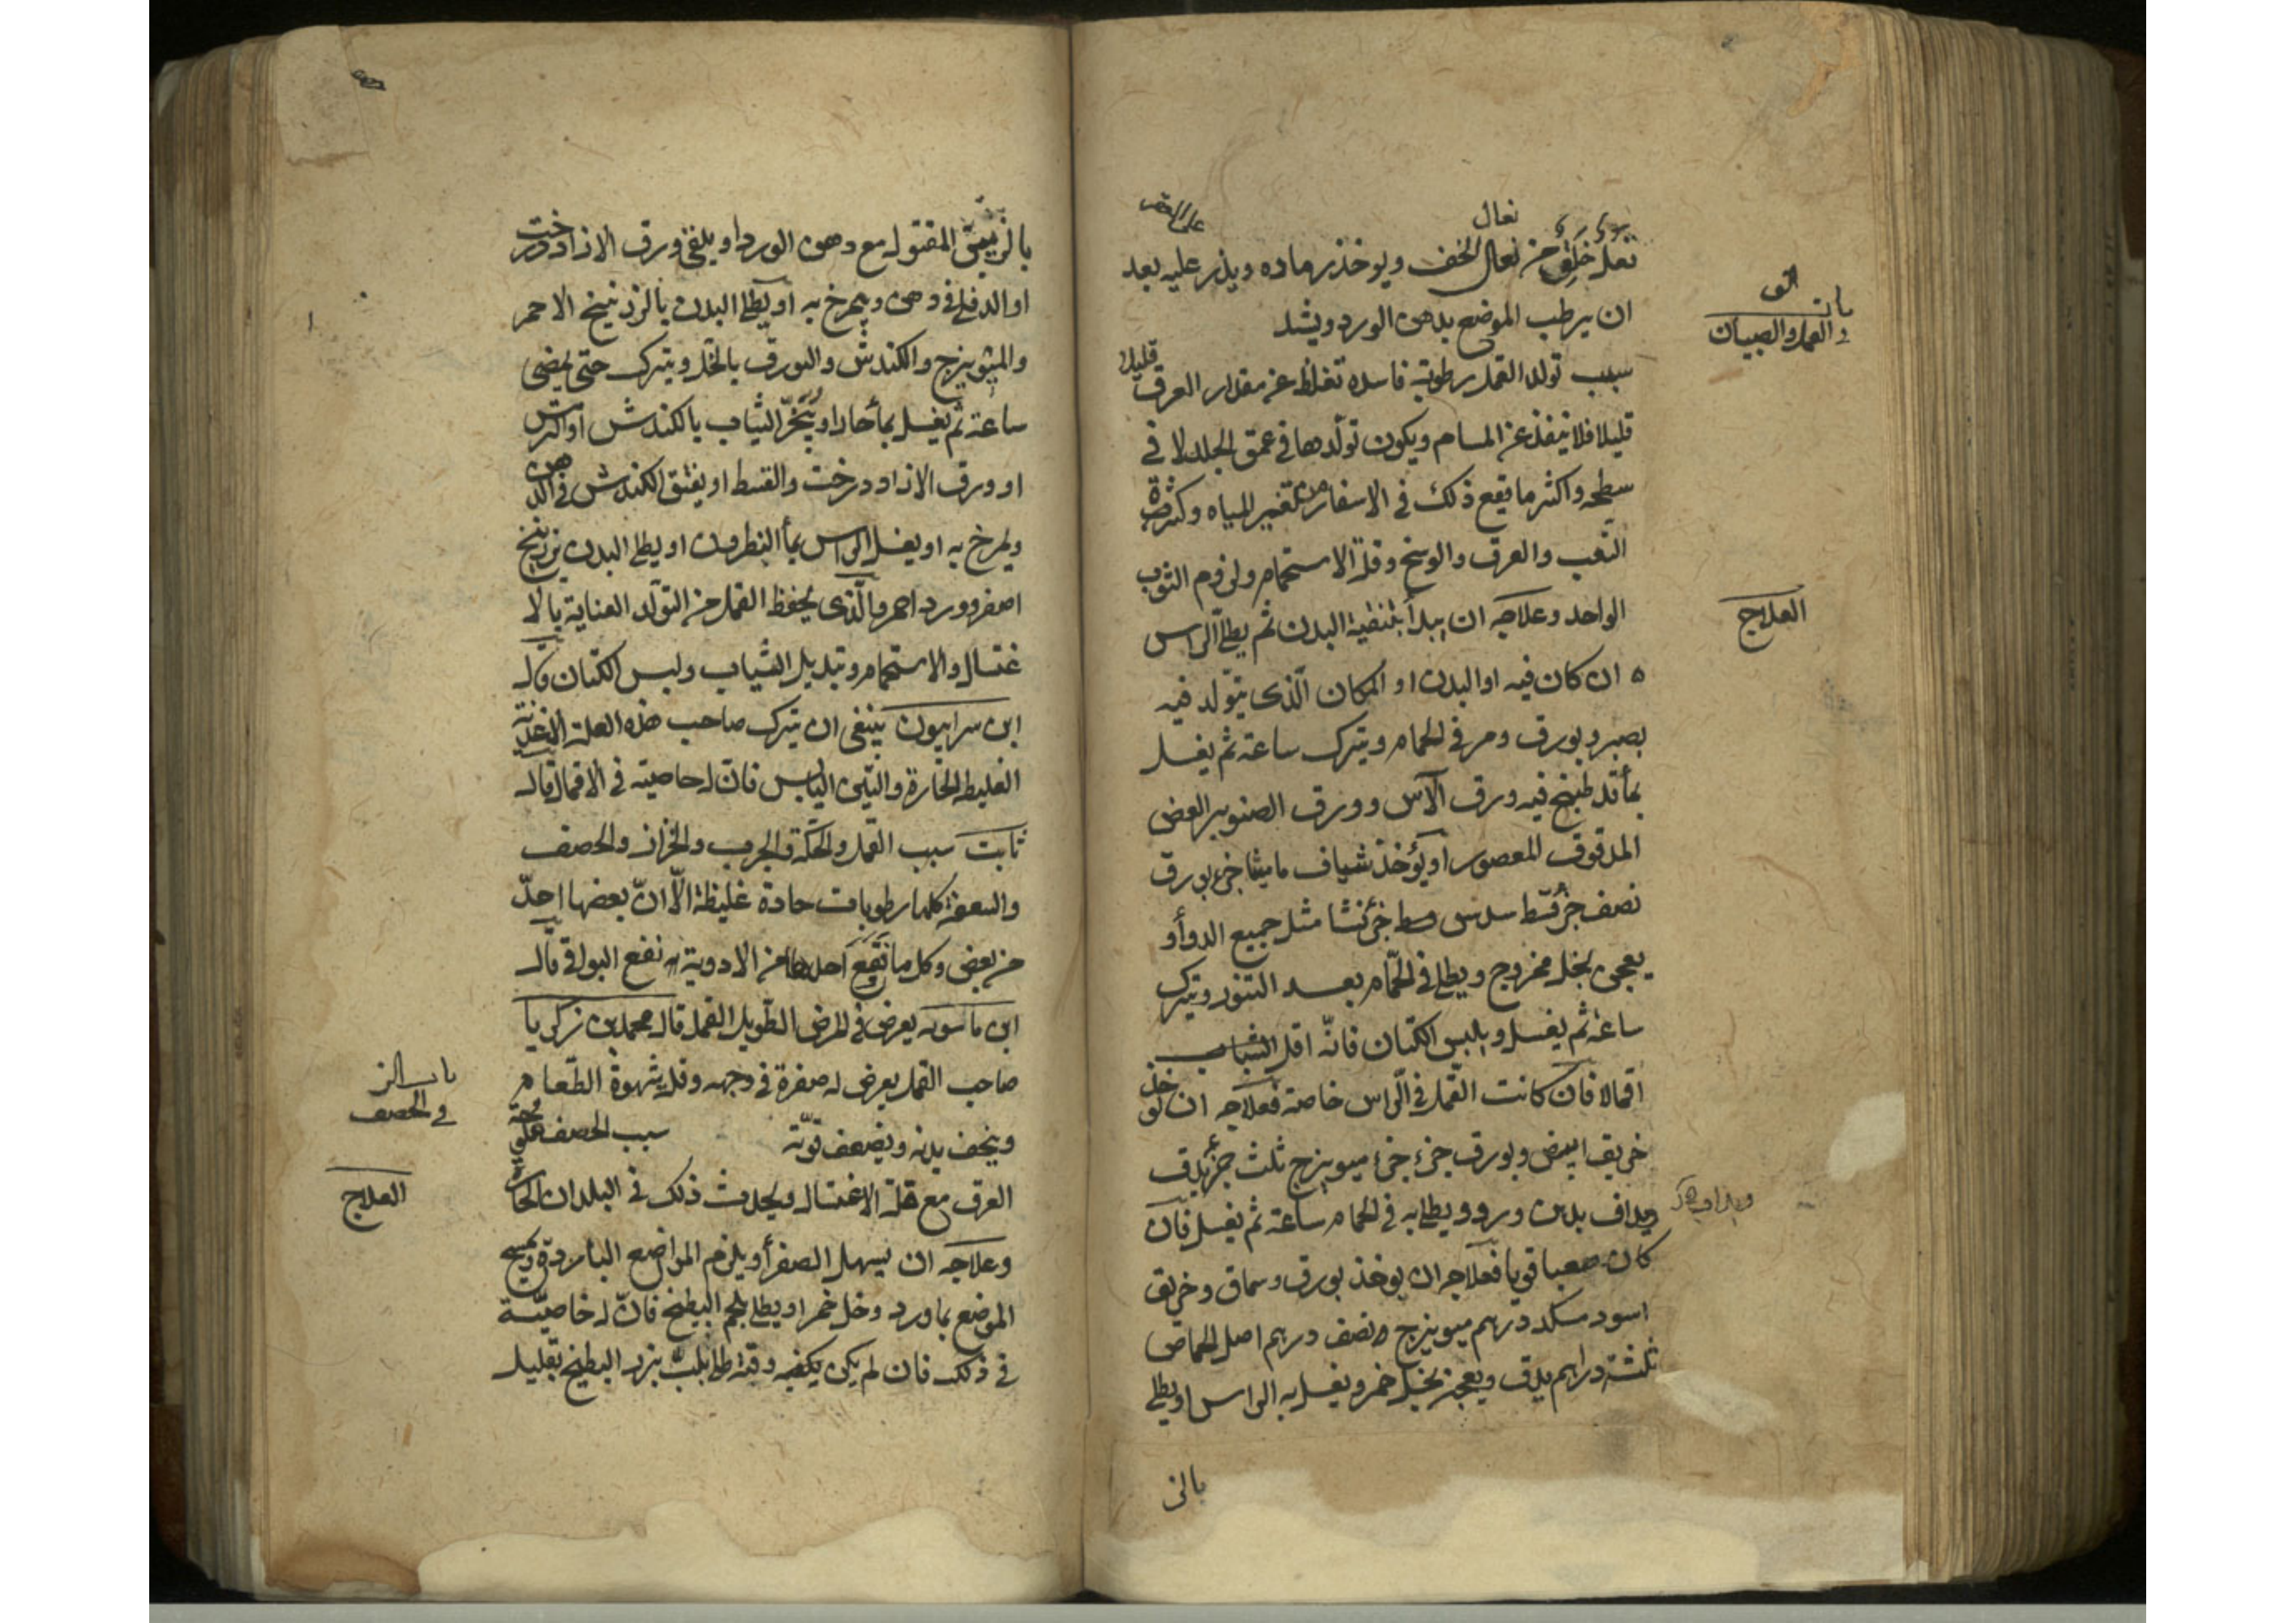 نعال
نعل خلق من نعال الخف ويوخذ رماده ويذر عليه بعد
ان يرطب الموضع بدهن الورد ويشد
باب
في القمل والصيبان
سبب تولد القمل رطوبة فاسدة تغلظ عن مقدار العرق قليلا
قليلا فلا ينفذ عن المسام ويكون تولدها في عمق الجلد لا في
سطحه واكثر ما يقع ذلك في الاسفار من تغير المياه وكثرة
التعب والعرق والوسخ وقلة الاستحمام ولزوم الثوب
العلاج
الواحد وعلاجه ان يبدأ بتنقية البدن ثم يطلى الراس
ان كان فيه او البدن او المكان الذي يتولد فيه
بصبر وبورق ومر في الحمام ويترك ساعة ثم يغسل
بماء قد طبخ فيه ورق الآس وورق الصنوبر الغض
المدقوق المعصور او يؤخذ شياف ماميثا جزء بورق
نصف جزء قسط سدس جزء نشا مثل جميع الدواء و
يعجن بخل ممزوج ويطلى في الحمام بعد التنور ويترك
ساعة ثم يغسل ويلبس الكتان فانه اقل الثياب
اقمالا فان كانت القمل في الراس خاصة فعلاجه ان يوخذ
خربق ابيض وبورق جزء جزء ميويزج ثلث جزء يدق
ويداف بدهن ورد ويطلى به في الحمام ساعة ثم يغسل فان
كان صعبا قويا فعلاجه ان يوخذ بورق وسماق وخربق
اسود من كل درهم ميويزج نصف درهم اصل الحماض
ثلثة دراهم يدق ويعجن بخل خمر ويغسل به الراس او يطلى
بالز
بالزيبق المقتول مع دهن الورد او يلقى ورق الازاددرخت
او الدفلى في دهن ويمرخ به او يطلى البدن بالزرنيخ الاحمر
والميويزج والكندش والبورق بالخل ويترك حتى يمضى
ساعة ثم يغسل بماء حار او يبخر الثياب بالكندش او
او ورق الازاددرخت والقسط او يفتق الكندش في الدهن
ويمرخ به او يغسل الراس بماء النطرون او يطلى البدن بزرنيخ
اصفر وورد احمر والذى يحفظ القمل من التولد العناية بالا
غتسال والاستحمام وتبديل الثياب ولبس الكتان قال
ابن سرابيون ينبغى ان يترك صاحب هذه العلة الاغذية
الغليظة الحارة والتين اليابس فان له خاصية في الاقمال قال
ثابت سبب القمل والحكة والجرب والحزاز والحصف
والسعفة كلها رطوبات حادة غليظة الا ان بعضها احد
من بعض وكل ما نفع احدها من الادوية نفع البواقى قال
ابن ماسويه يعرض في المرض الطويل القمل قال محمد بن زكريا
صاحب القمل يعرض له صفرة في وجهه وقلة شهوة الطعام
وينحف بدنه ويضعف قوته
باب
في الحصف
سبب الحصف ملوحة
العلاج
العرق مع قلة الاغتسال ويحدث ذلك في البلدان الحارة
وعلاجه ان يسهل الصفراء ويلزم المواضع الباردة ويمسح
الموضع بماورد وخل خمر او يطلى بلحم البطيخ فان له خاصية
في ذلك فان لم يكن يكفيه وقته اطل بلب بزر البطيخ بقليل